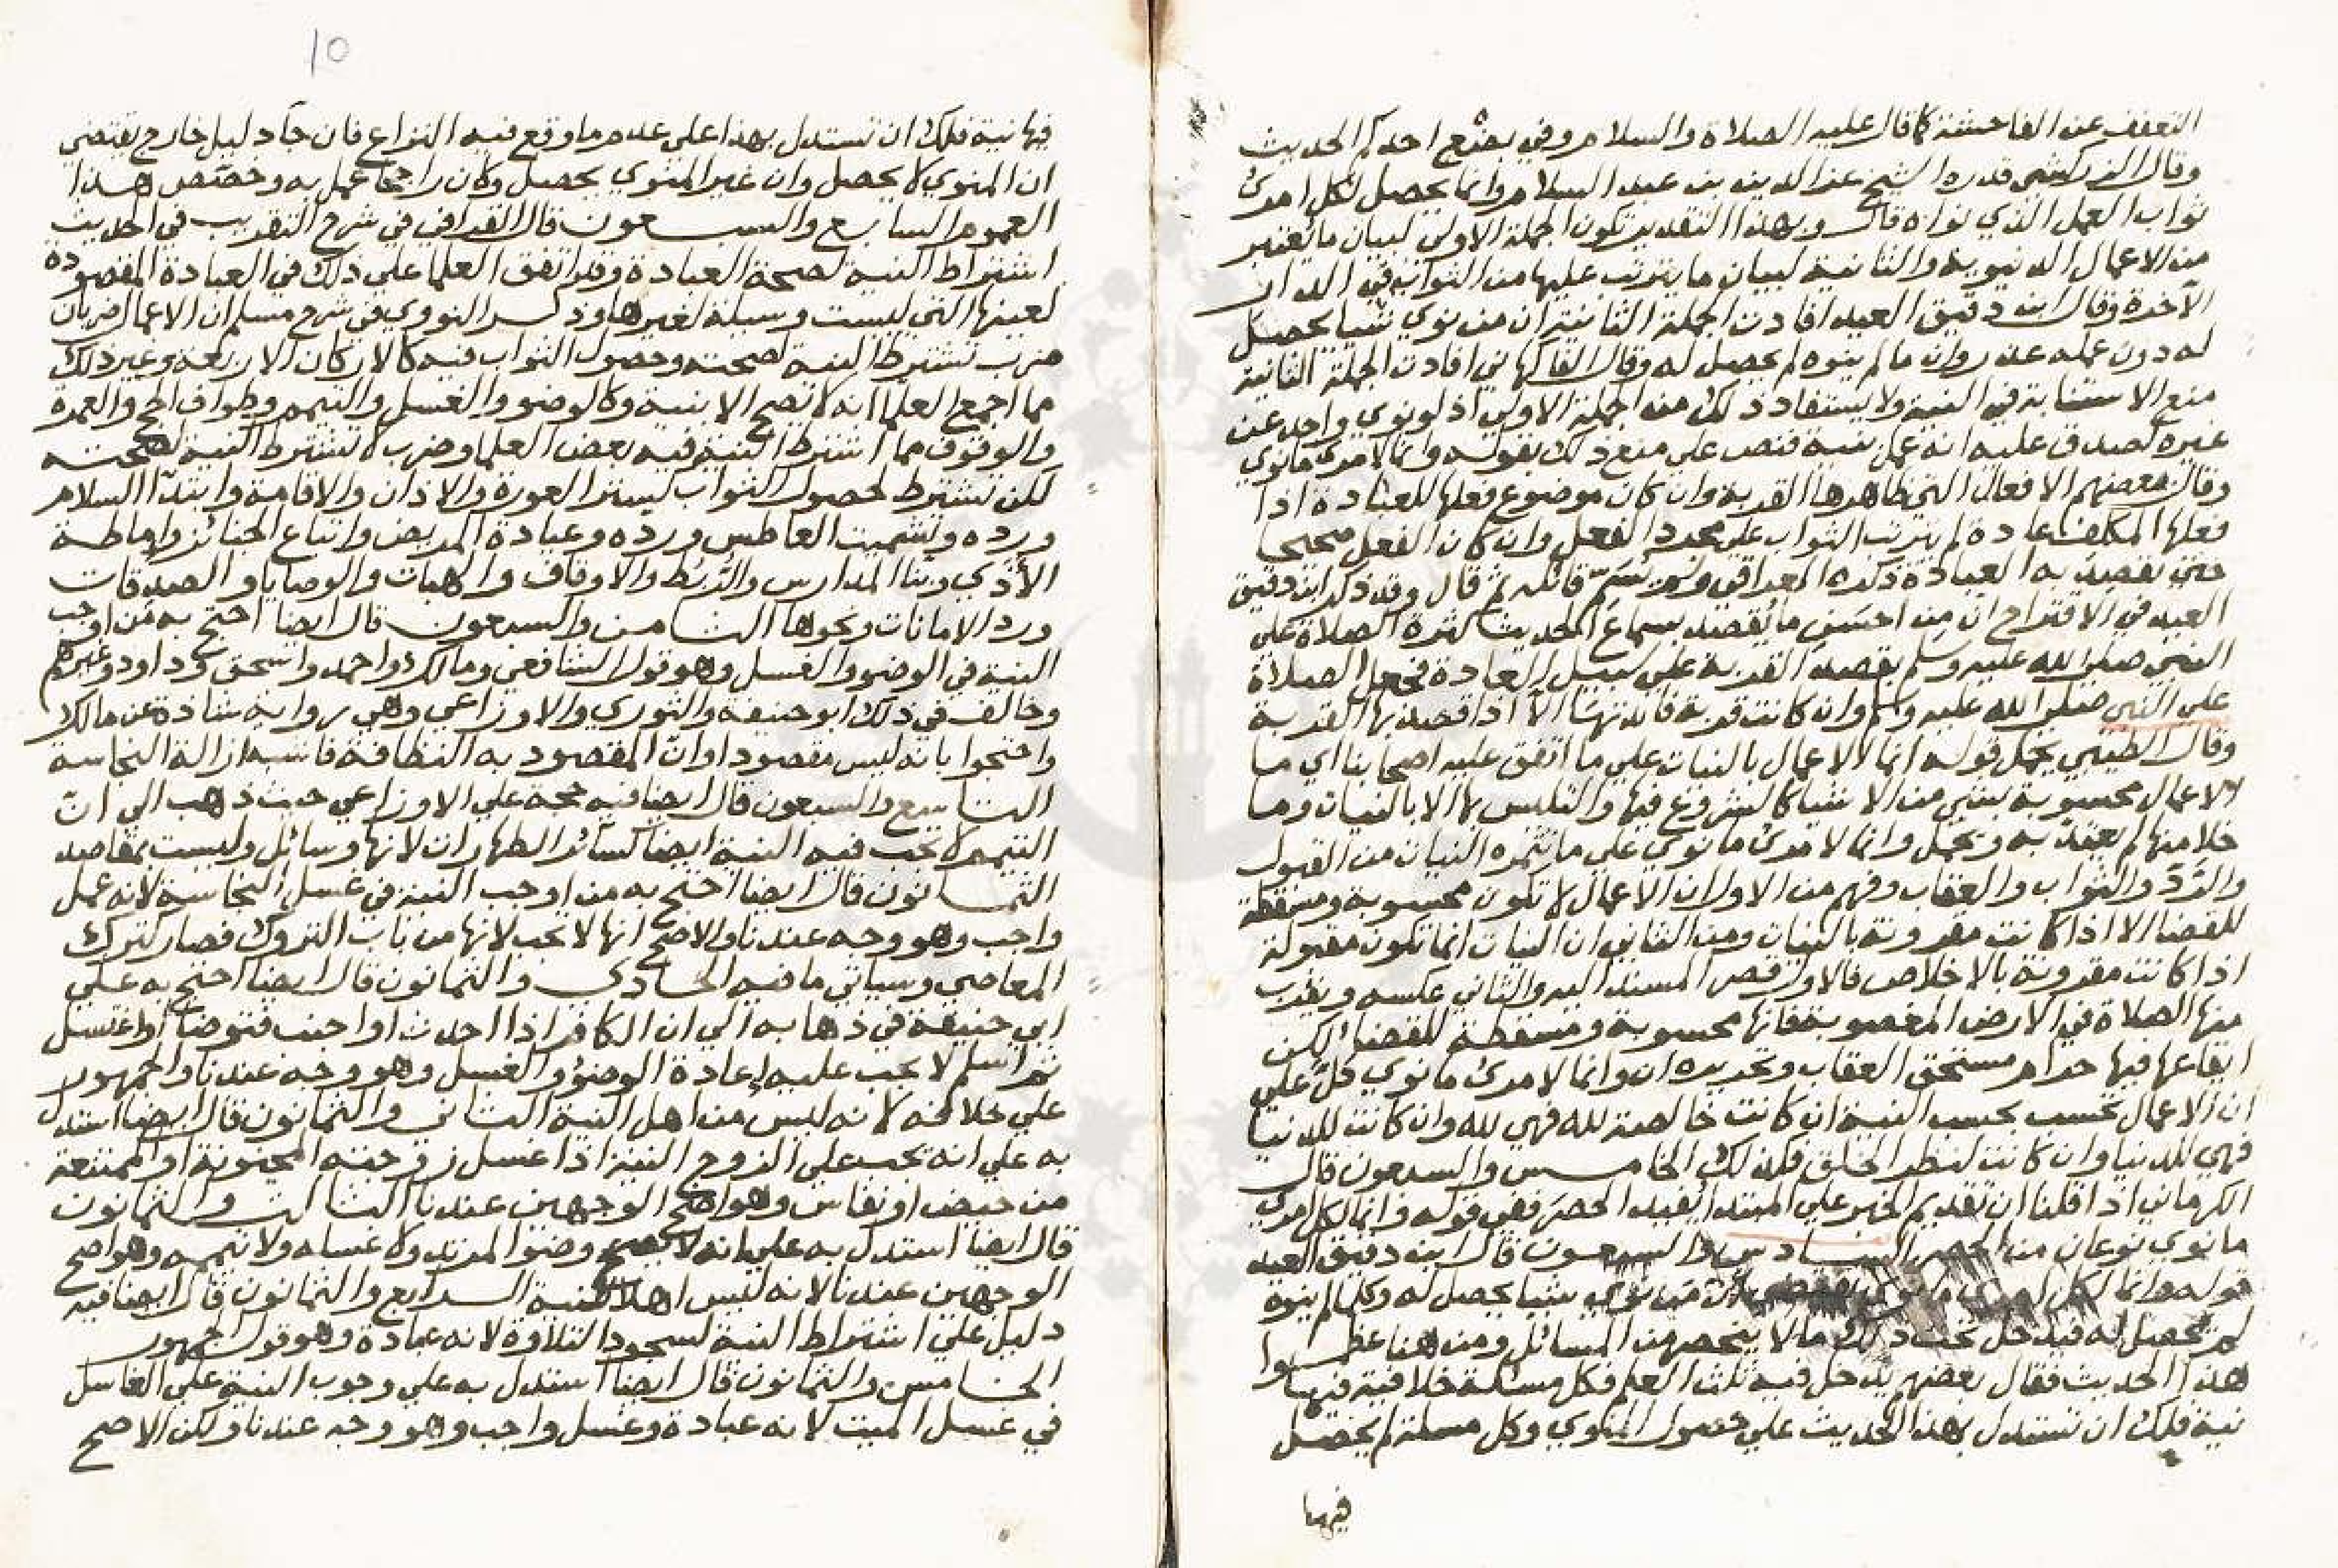 التعفف عن الفاحشة كما قال عليه الصلاة والسلام وفي بضع احدكم الحديث
وقال الزركشي قدره الشيخ عز الدين بن عبد السلام وانما يحصل لكل امرئ
ثواب العمل الذي نواه قال وبهذا التقدير تكون الجملة الاولى لبيان ما يعتبر
من الاعمال الدنيوية والثانية لبيان ما يترتب عليها من الثواب في الدار
الآخرة وقال ابن دقيق العيد افادت الجملة الثانية ان من نوي شيا يحصل
له دون عمله عذر وان ما لم ينوه لم يحصل له وقال الفاكهاني افادت الجملة الثانية
منع الاستنابة في النية ولا يستفاد ذلك من الجملة الاولى اذ لو نوي واحد عن
غيره لصدق عليه انه عمل بنية فنص على منع ذلك بقوله وانما لامرئ ما نوي
وقال بعضهم الافعال التي ظاهرها القربة وان كان موضوع فعلها للعبادة اذا
فعلها المكلف عادة لم يترتب الثواب على مجرد الفعل وان كان الفعل صحيحا
حتى يقصد به العبادة ذكره العراقي ولم يسم قائله ثم قال وقد ذكر ابن دقيق
العيد في الاقتراح ان من احسن ما يقصد بسماع الحديث كثرة الصلاة على
النبي صلى الله عليه وسلم بقصد القربة على سبيل العادة فجعل الصلاة
على النبي صلى الله عليه وسلم وان كانت قربة فائدتها الا اذا قصد بها القربة
وقال الطيبي يحمل قوله انما الاعمال بالنيات على ما اتفق عليه اصحابنا اي ما
الاعمال محسوبة بشي من الاشيا كالشروع فيها والتلبس بها الا بالنيات وما
خلا منها لم يعتد به ويحمل وانما لامرئ ما نوي على ما تثمره النيات من القبول
والرد والثواب والعقاب وفهم من الاول ان الاعمال لا تكون محسوبة ومسقطة
للقضا الا اذا كانت مقرونة بالنيات ومن الثاني ان النيات انما تكون مقبولة
اذا كانت مقرونة بالاخلاص فالاول قصر المسند اليه والثاني عكسه ويقرب
منها الصلاة في الارض المغصوبة فانها محسوبة ومسقطة للقضا لكن
ايقاعها فيها حرام مستحق العقاب وتحريره ان وانما لامرئ ما نوي دل على
ان الاعمال تحسب بحسب النية ان كانت خالصة لله فهي لله وان كانت للدنيا
فهي للدنيا وان كانت لنظر الخلق فكذلك الخامس والسبعون قال
الكرماني اذا قلنا ان تقديم الخبر على المبتدا يفيد الحصر ففي قوله وانما لكل امرئ
ما نوي نوعان من الحصر السادس والسبعون قال ابن دقيق العيد
قوله وانما لكل امرئ ما نوي يقتضي ان من نوي شيا يحصل له وكل ما لم ينوه
لم يحصل له فيدخل تحت ذلك ما لا ينحصر من المسائل ومن هنا عظموا
هذا الحديث فقال بعضهم يدخل فيه ثلث العلم فكل مسئلة خلافية فيها
نية فلك ان تستدل بهذا الحديث على حصول المنوي وكل مسئلة لم يحصل
فيها
10
فيها نية فلك ان تستدل بهذا على عدم ما وقع فيه النزاع فان جآ دليل خارج يقتضي
ان المنوي لا يحصل وان غير المنوي يحصل وكان راجحا عمل به وخصص هذا
العموم السابع والسبعون قال العراقي في شرح التقريب في الحديث
اشتراط النية لصحة العبادة وقد اتفق العلما على ذلك في العبادة المقصودة
لعينها التي ليست وسيلة لغيرها وذكر النووي في شرح مسلم ان الاعمال ضربان
ضرب تشترط النية لصحته وحصول الثواب فيه كالاركان الاربعة وغير ذلك
مما اجمع العلما انه لا تصح الا بنية وكالوضو والغسل والتيمم وطواف الحج والعمرة
والوقوف مما اشترط النية فيه بعض العلما وضرب لا تشترط النية لصحته
لكن تشترط لحصول الثواب كستر العورة والاذان والاقامة وابتدآ السلام
ورده وتشميت العاطس ورده وعيادة المريض واتباع الجنائز واماطة
الأذي وبنا المدارس والربط والاوقاف والهبات والوصايا والصدقات
ورد الامانات ونحوها الثامن والسبعون قال ايضا احتج به من اوجب
النية في الوضو والغسل وهو قول الشافعي ومالك واحمد واسحق وداود وغيرهم
وخالف في ذلك ابو حنيفة والثوري والاوزاعي وهي رواية شاذة عن مالك
واحتجوا بانه ليس مقصودا وان المقصود به النظافة فاشبه ازالة النجاسة
التاسع والسبعون قال ايضا فيه حجة على الاوزاعي حيث ذهب الى ان
التيمم لا تجب فيه النية ايضا كسائر الطهارات لانها وسائل وليست بمقاصد
الثمانون قال ايضا احتج به من اوجب النية في غسل النجاسة لانه عمل
واجب وهو وجه عندنا والاصح انها لا تجب لانها من باب التروك فصار كترك
المعاصي وسياتي ما فيه الحادي والثمانون قال ايضا احتج به على
ابي حنيفة في ذهابه الي ان الكافر اذا احدث او اجنب فتوضا او اغتسل
ثم اسلم لا يجب عليه اعادة الوضوء والغسل وهو وجه عندنا والجمهور
علي خلافه لانه ليس من اهل النية الثاني والثمانون قال ايضا استدل
به علي انه تجب علي الزوج النية اذا غسل زوجته المجنونة او الممتنعة
من حيض او نفاس وهو اصح الوجهين عندنا الثالث والثمانون
قال ايضا استدل به علي انه لا يصح وضو المرتد ولا غسله ولا تيممه وهو اصح
الوجهين عندنا لانه ليس اهلا للنية الرابع والثمانون قال ايضا فيه
دليل علي اشتراط النية لسجود التلاوة لانه عبادة وهو قول الجمهور
الخامس والثمانون قال ايضا استدل به علي وجوب النية علي الغاسل
في غسل الميت لانه عبادة وغسل واجب وهو وجه عندنا ولكن الاصح